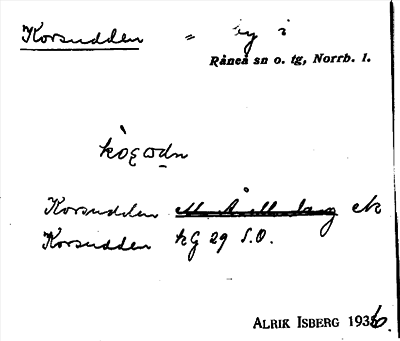 Korsudden = by i
Råneå sn o. tg, Norrb. l.
Korsudden ek
Korsudden kG 29 S.O.
ALRIK ISBERG 1936.